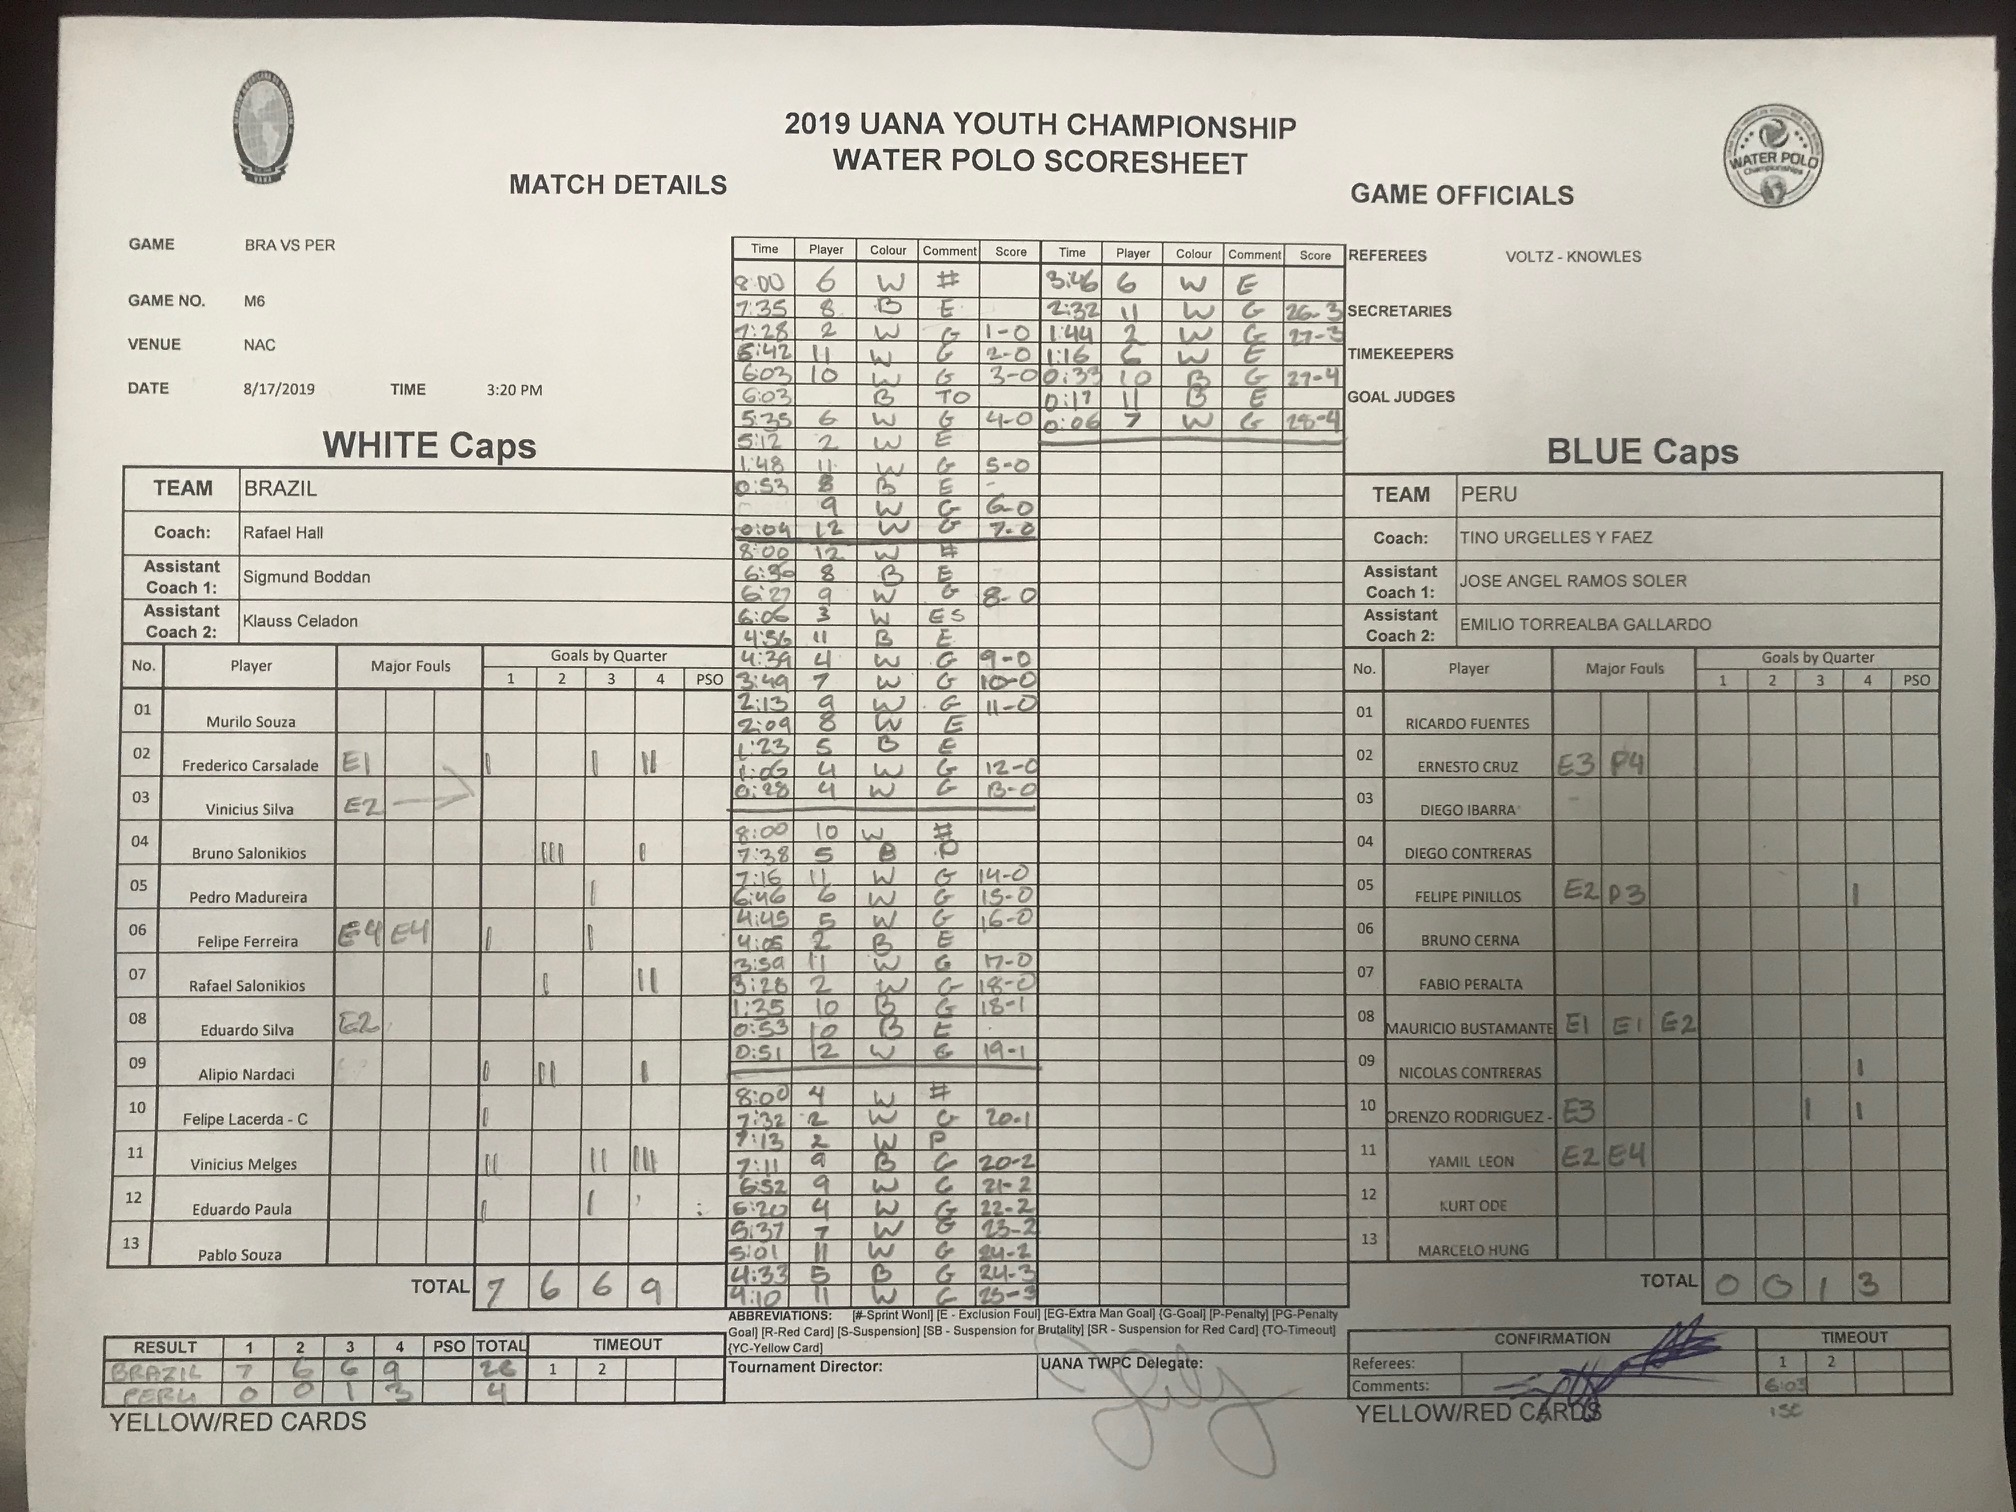 2019 UANA YOUTH CHAMPIONSHIP
WATER POLO SCORESHEET
WATER POLO
Championships
UANA
MATCH DETAILS
GAME OFFICIALS
GAME BRA VS PER
GAME NO. M6
VENUE NAC
DATE 8/17/2019 TIME 3:20 PM
REFEREES VOLTZ - KNOWLES
SECRETARIES
TIMEKEEPERS
GOAL JUDGES
WHITE Caps
TEAM BRAZIL
Coach: Rafael Hall
Assistant Coach 1: Sigmund Boddan
Assistant Coach 2: Klauss Celadon
No. Player Major Fouls Goals by Quarter
1 2 3 4 PSO
01 Murilo Souza
02 Frederico Carsalade E1 | | ||
03 Vinicius Silva E2
04 Bruno Salonikios ||| |
05 Pedro Madureira |
06 Felipe Ferreira E4 E4 | |
07 Rafael Salonikios | ||
08 Eduardo Silva E2
09 Alipio Nardaci | || |
10 Felipe Lacerda - C |
11 Vinicius Melges || || |||
12 Eduardo Paula | |
13 Pablo Souza
TOTAL 7 6 6 9
RESULT 1 2 3 4 PSO TOTAL TIMEOUT
1 2
BRAZIL 7 6 6 9 28
PERU 0 0 1 3 4
YELLOW/RED CARDS
Time Player Colour Comment Score
8:00 6 W #
7:35 8 B E
7:28 2 W G 1-0
6:42 11 W G 2-0
6:03 10 W G 3-0
6:03 B TO
5:35 6 W G 4-0
5:12 2 W E
1:48 11 W G 5-0
0:53 8 B E
9 W G 6-0
0:04 12 W G 7-0
8:00 12 W #
6:36 8 B E
6:27 9 W G 8-0
6:06 3 W ES
4:56 11 B E
4:39 4 W G 9-0
3:49 7 W G 10-0
2:13 9 W G 11-0
2:09 8 W E
1:23 5 B E
1:06 4 W G 12-0
0:28 4 W G 13-0
8:00 10 W #
7:38 5 B P
7:16 11 W G 14-0
6:46 6 W G 15-0
4:45 5 W G 16-0
4:05 2 B E
3:59 11 W G 17-0
3:28 2 W G 18-0
1:35 10 B G 18-1
0:53 10 B E
0:51 12 W G 19-1
8:00 4 W #
7:32 2 W G 20-1
7:13 2 W P
7:11 9 B G 20-2
6:52 9 W G 21-2
6:20 4 W G 22-2
5:37 7 W G 23-2
5:01 11 W G 24-2
4:33 5 B G 24-3
4:10 11 W G 25-3
Time Player Colour Comment Score
3:46 6 W E
2:32 11 W G 26-3
1:44 2 W G 27-3
1:16 6 W E
0:33 10 B G 27-4
0:17 11 B E
0:06 7 W G 28-4
ABBREVIATIONS: [#-Sprint Wonl] [E - Exclusion Foul] [EG-Extra Man Goal] {G-Goal] [P-Penalty] [PG-Penalty
Goal] [R-Red Card] [S-Suspension] [SB - Suspension for Brutality] [SR - Suspension for Red Card] {TO-Timeout]
{YC-Yellow Card]
Tournament Director:
UANA TWPC Delegate:
BLUE Caps
TEAM PERU
Coach: TINO URGELLES Y FAEZ
Assistant Coach 1: JOSE ANGEL RAMOS SOLER
Assistant Coach 2: EMILIO TORREALBA GALLARDO
No. Player Major Fouls Goals by Quarter
1 2 3 4 PSO
01 RICARDO FUENTES
02 ERNESTO CRUZ E3 P4
03 DIEGO IBARRA
04 DIEGO CONTRERAS
05 FELIPE PINILLOS E2 P3 |
06 BRUNO CERNA
07 FABIO PERALTA
08 MAURICIO BUSTAMANTE E1 E1 E2
09 NICOLAS CONTRERAS |
10 ORENZO RODRIGUEZ - E3 | |
11 YAMIL LEON E2 E4
12 KURT ODE
13 MARCELO HUNG
TOTAL 0 0 1 3
CONFIRMATION TIMEOUT
Referees: 1 2
Comments: 6:03
1st
YELLOW/RED CARDS